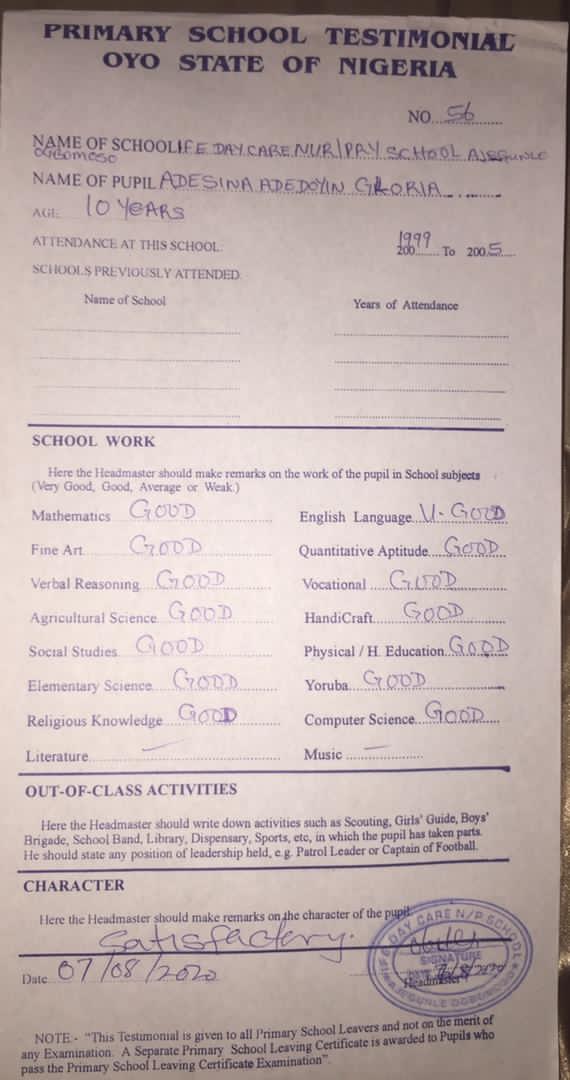 PRIMARY SCHOOL TESTIMONIAL
OYO STATE OF NIGERIA
NO. 56
NAME OF SCHOOL IFE DAY CARE NUR/PRY SCHOOL AJEGUNLE
OGBOMOSO
NAME OF PUPIL ADESINA ADEDOYIN GLORIA
AGE 10 YEARS
ATTENDANCE AT THIS SCHOOL: 1999 200 To 2005
SCHOOLS PREVIOUSLY ATTENDED:
Name of School Years of Attendance
SCHOOL WORK
Here the Headmaster should make remarks on the work of the pupil in School subjects
(Very Good, Good, Average or Weak.)
Mathematics GOOD English Language V. GOOD
Fine Art GOOD Quantitative Aptitude GOOD
Verbal Reasoning GOOD Vocational GOOD
Agricultural Science GOOD HandiCraft GOOD
Social Studies GOOD Physical / H. Education GOOD
Elementary Science GOOD Yoruba GOOD
Religious Knowledge GOOD Computer Science GOOD
Literature — Music —
OUT-OF-CLASS ACTIVITIES
Here the Headmaster should write down activities such as Scouting, Girls' Guide, Boys'
Brigade, School Band, Library, Dispensary, Sports, etc, in which the pupil has taken parts.
He should state any position of leadership held, e.g. Patrol Leader or Captain of Football.
CHARACTER
Here the Headmaster should make remarks on the character of the pupil.
Satisfactory.
IFE DAY CARE N/P SCHOOL
SIGNATURE
DATE 7/8/2020
AJEGUNLE OGBOMOSO
Date 07/08/2020 Headmaster
NOTE:- "This Testimonial is given to all Primary School Leavers and not on the merit of
any Examination. A Separate Primary School Leaving Certificate is awarded to Pupils who
pass the Primary School Leaving Certificate Examination".